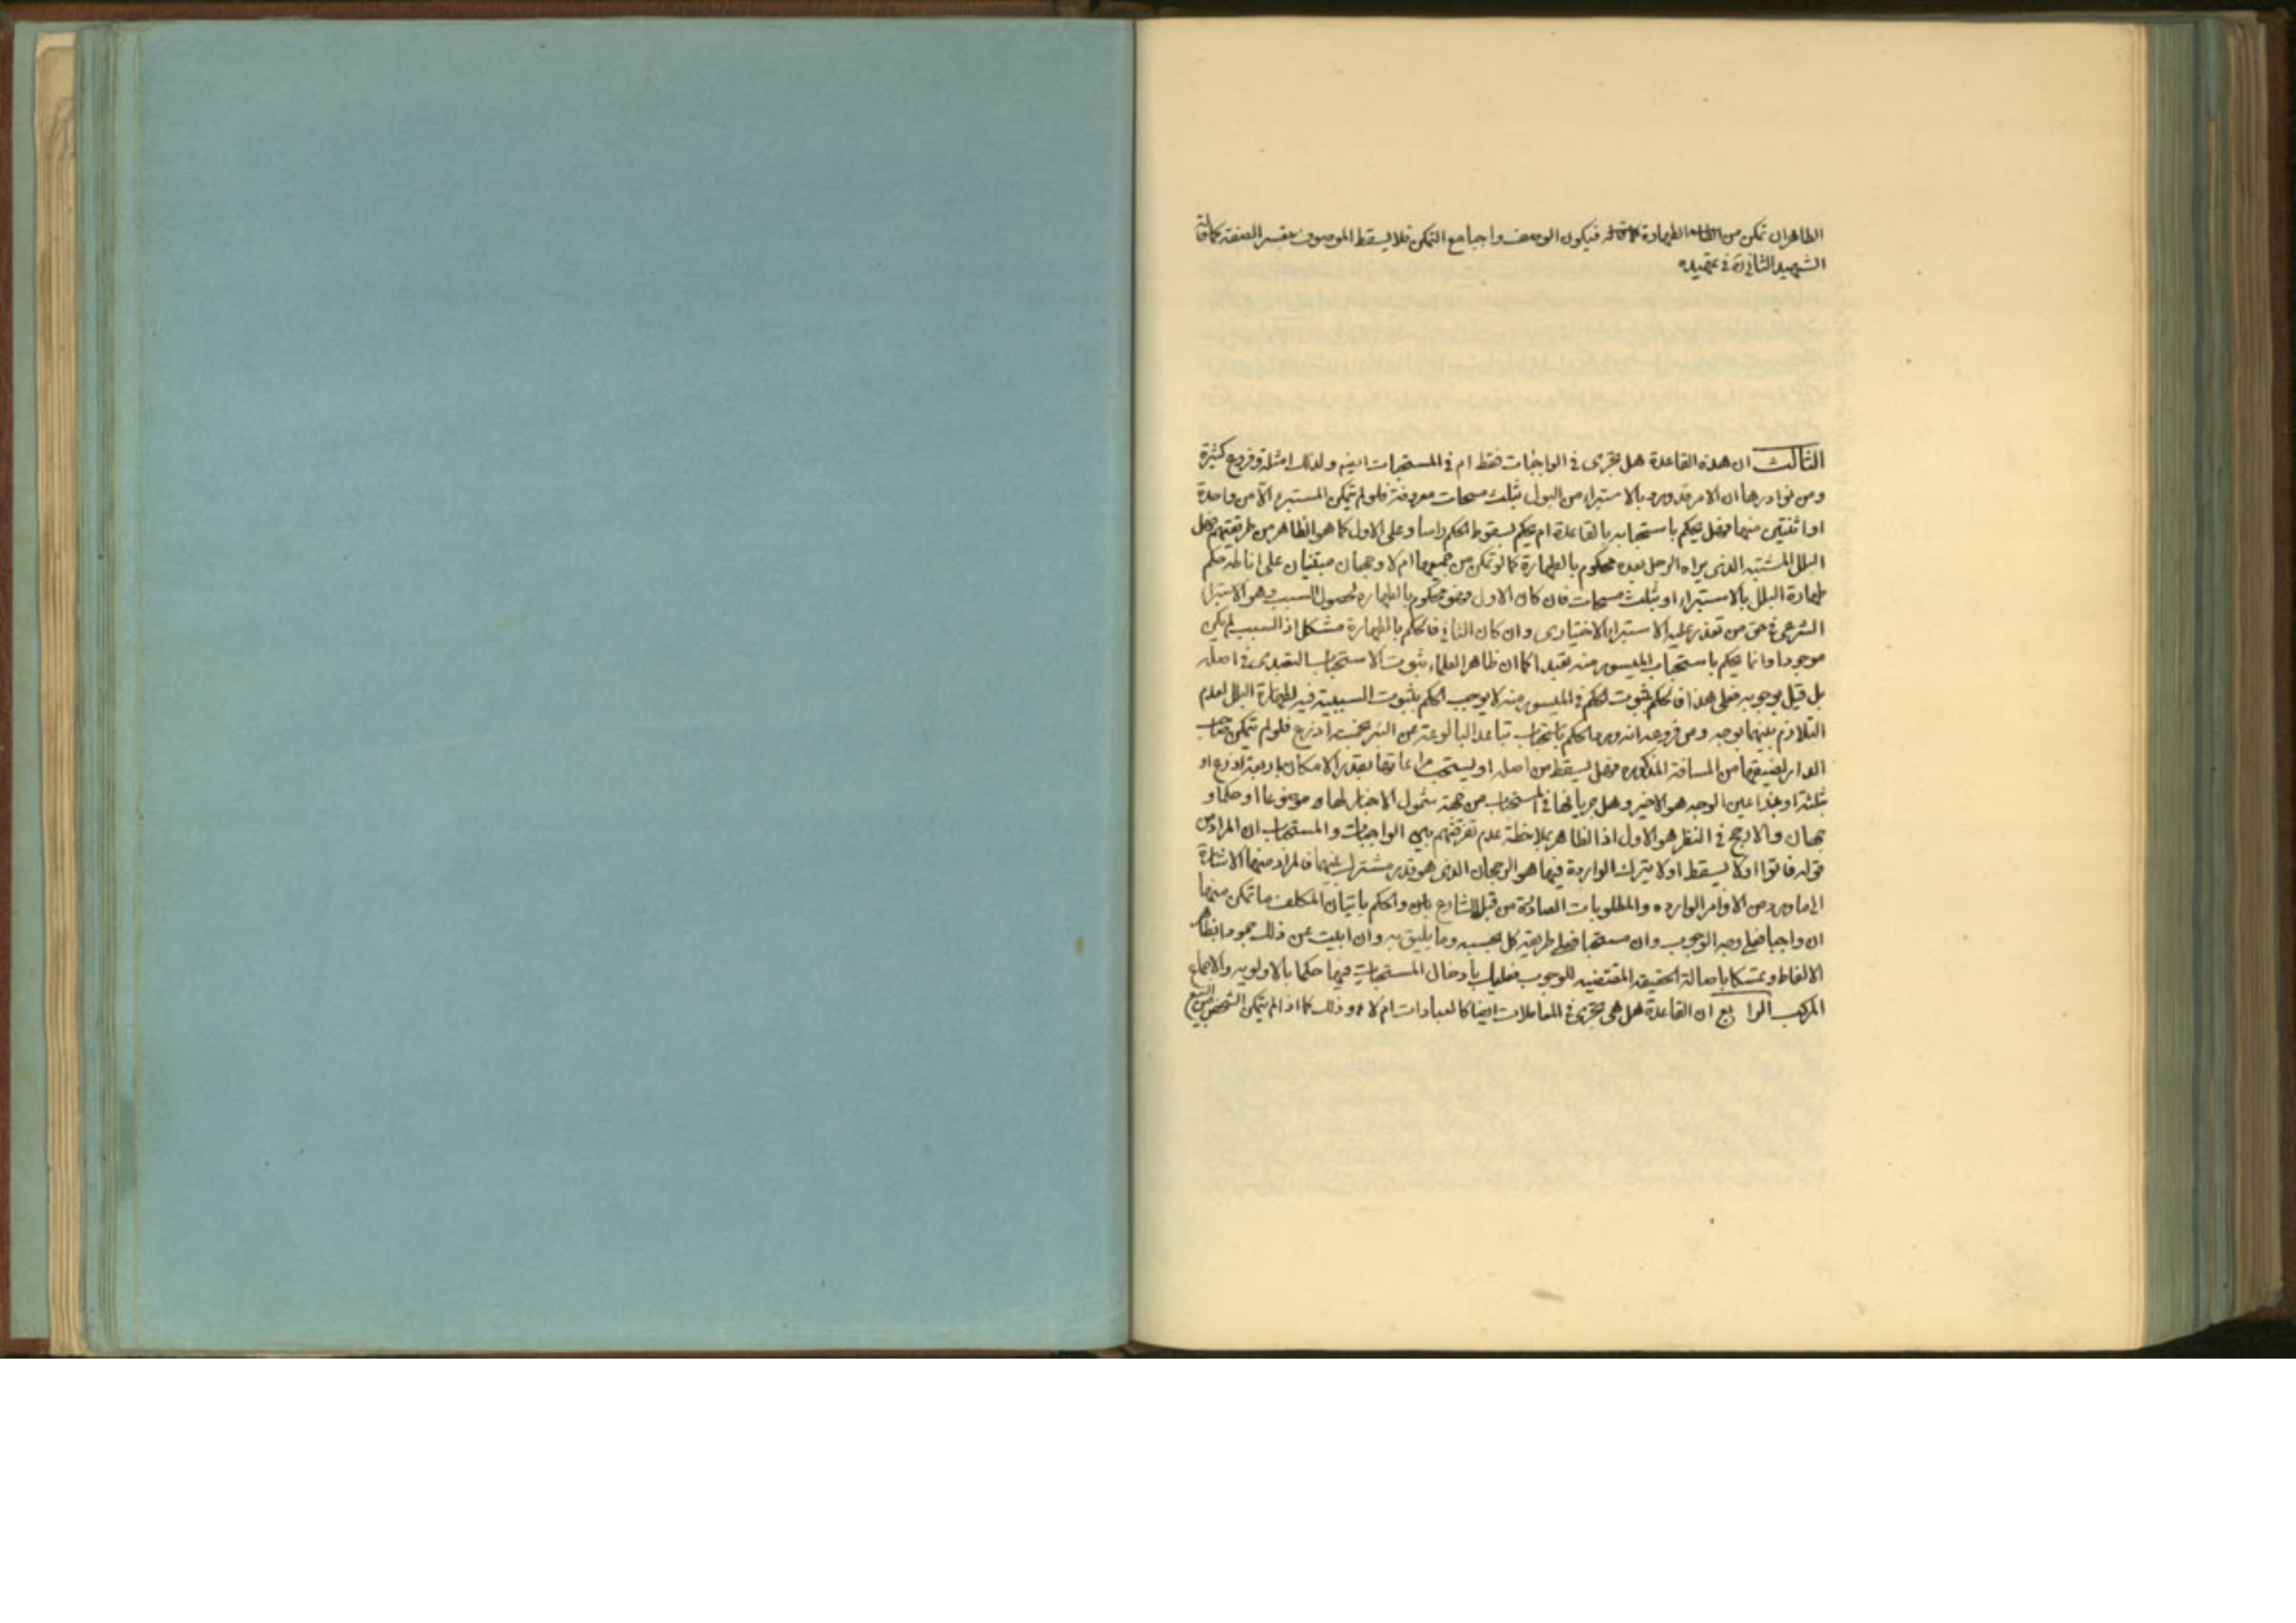 الطاهر ان تمكن من الطهارة فيكون الوصف واجبا مع التمكن فلا يسقط الموصوف بتعسر الصفة كما قاله
الشهيد الثاني ره في تمهيده
الثالث ان هذه القاعدة هل تجرى في الواجبات فقط ام في المستحبات ايضا ولذلك امثلة وفروع كثيرة
ومن نوادرها ان الامر قد ورد بالاستبراء من البول بثلث مسحات معروفة فلو لم يتمكن المستبرء الا من واحدة
او اثنتين منها فهل يحكم باستحبابه بالقاعدة ام يحكم بسقوط الحكم راسا وعلى الاول كما هو الظاهر من طريقتهم فهل
البلل المشتبه الذى يراه الرجل بعده محكوم بالطهارة كما لو تمكن من جميعها ام لا وجهان مبتنيان على اناطة حكم
طهارة البلل بالاستبراء او بثلث مسحات فان كان الاول فهو محكوم بالطهاره لحصول السبب وهو الاستبراء
الشرعي في حق من تعذر عليه الاستبراء الاختيارى وان كان الثاني فالحكم بالطهارة مشكل اذ السبب لم يكن
موجودا وانما يحكم باستحباب الميسور منه تعبدا كما ان ظاهر العلماء ثبوت الاستحباب التعبدى في اصله
بل قيل بوجوبه فعلى هذا فالحكم بثبوت الحكم في الميسور منه لا يوجب الحكم بثبوت السببية فيه لطهارة البلل لعدم
التلازم بينهما بوجه ومن فروعه انه ورد الحكم باستحباب تباعد البالوعة عن البئر بخمسة اذرع فلو لم يتمكن صاحب
الدار لضيقها من المسافة المذكوره فهل يسقط من اصله او يستحب مراعاتها بقدر الامكان باربعة اذرع او
ثلثة او غيرها عين الوجه هو الاخير وهل جريانها في المستحبات من جهة شمول الاخبار لها موضوعا او حكما و
جهان والارجح في النظر هو الاول اذ الظاهر بملاحظة عدم تفرقتهم بين الواجبات والمستحبات ان المراد من
قوله فاتوا او لا يسقط او لا يترك الواردة فيها هو الرجحان الذى هو قدر مشترك بينهما فالمراد منهما الاشارة
الى ما ورد من الاوامر الوارده والمطلوبات الصادرة من قبل الشارع والحكم باتيان المكلف ما تمكن منها
ان واجبا فعلى وجه الوجوب وان مستحبا فعلى طريقه كل بحسبه وما يليق به وان ابيت عن ذلك جمودا بظاهر
الالفاظ وتمسكا باصالة الحقيقه المقتضيه للوجوب فعليك بادخال المستحبات فيها حكما بالاولويه والاجماع
المركب الرابع ان القاعدة هل هي تجرى في المعاملات ايضا كالعبادات ام لا وذلك كما اذا لم يتمكن الشخص من